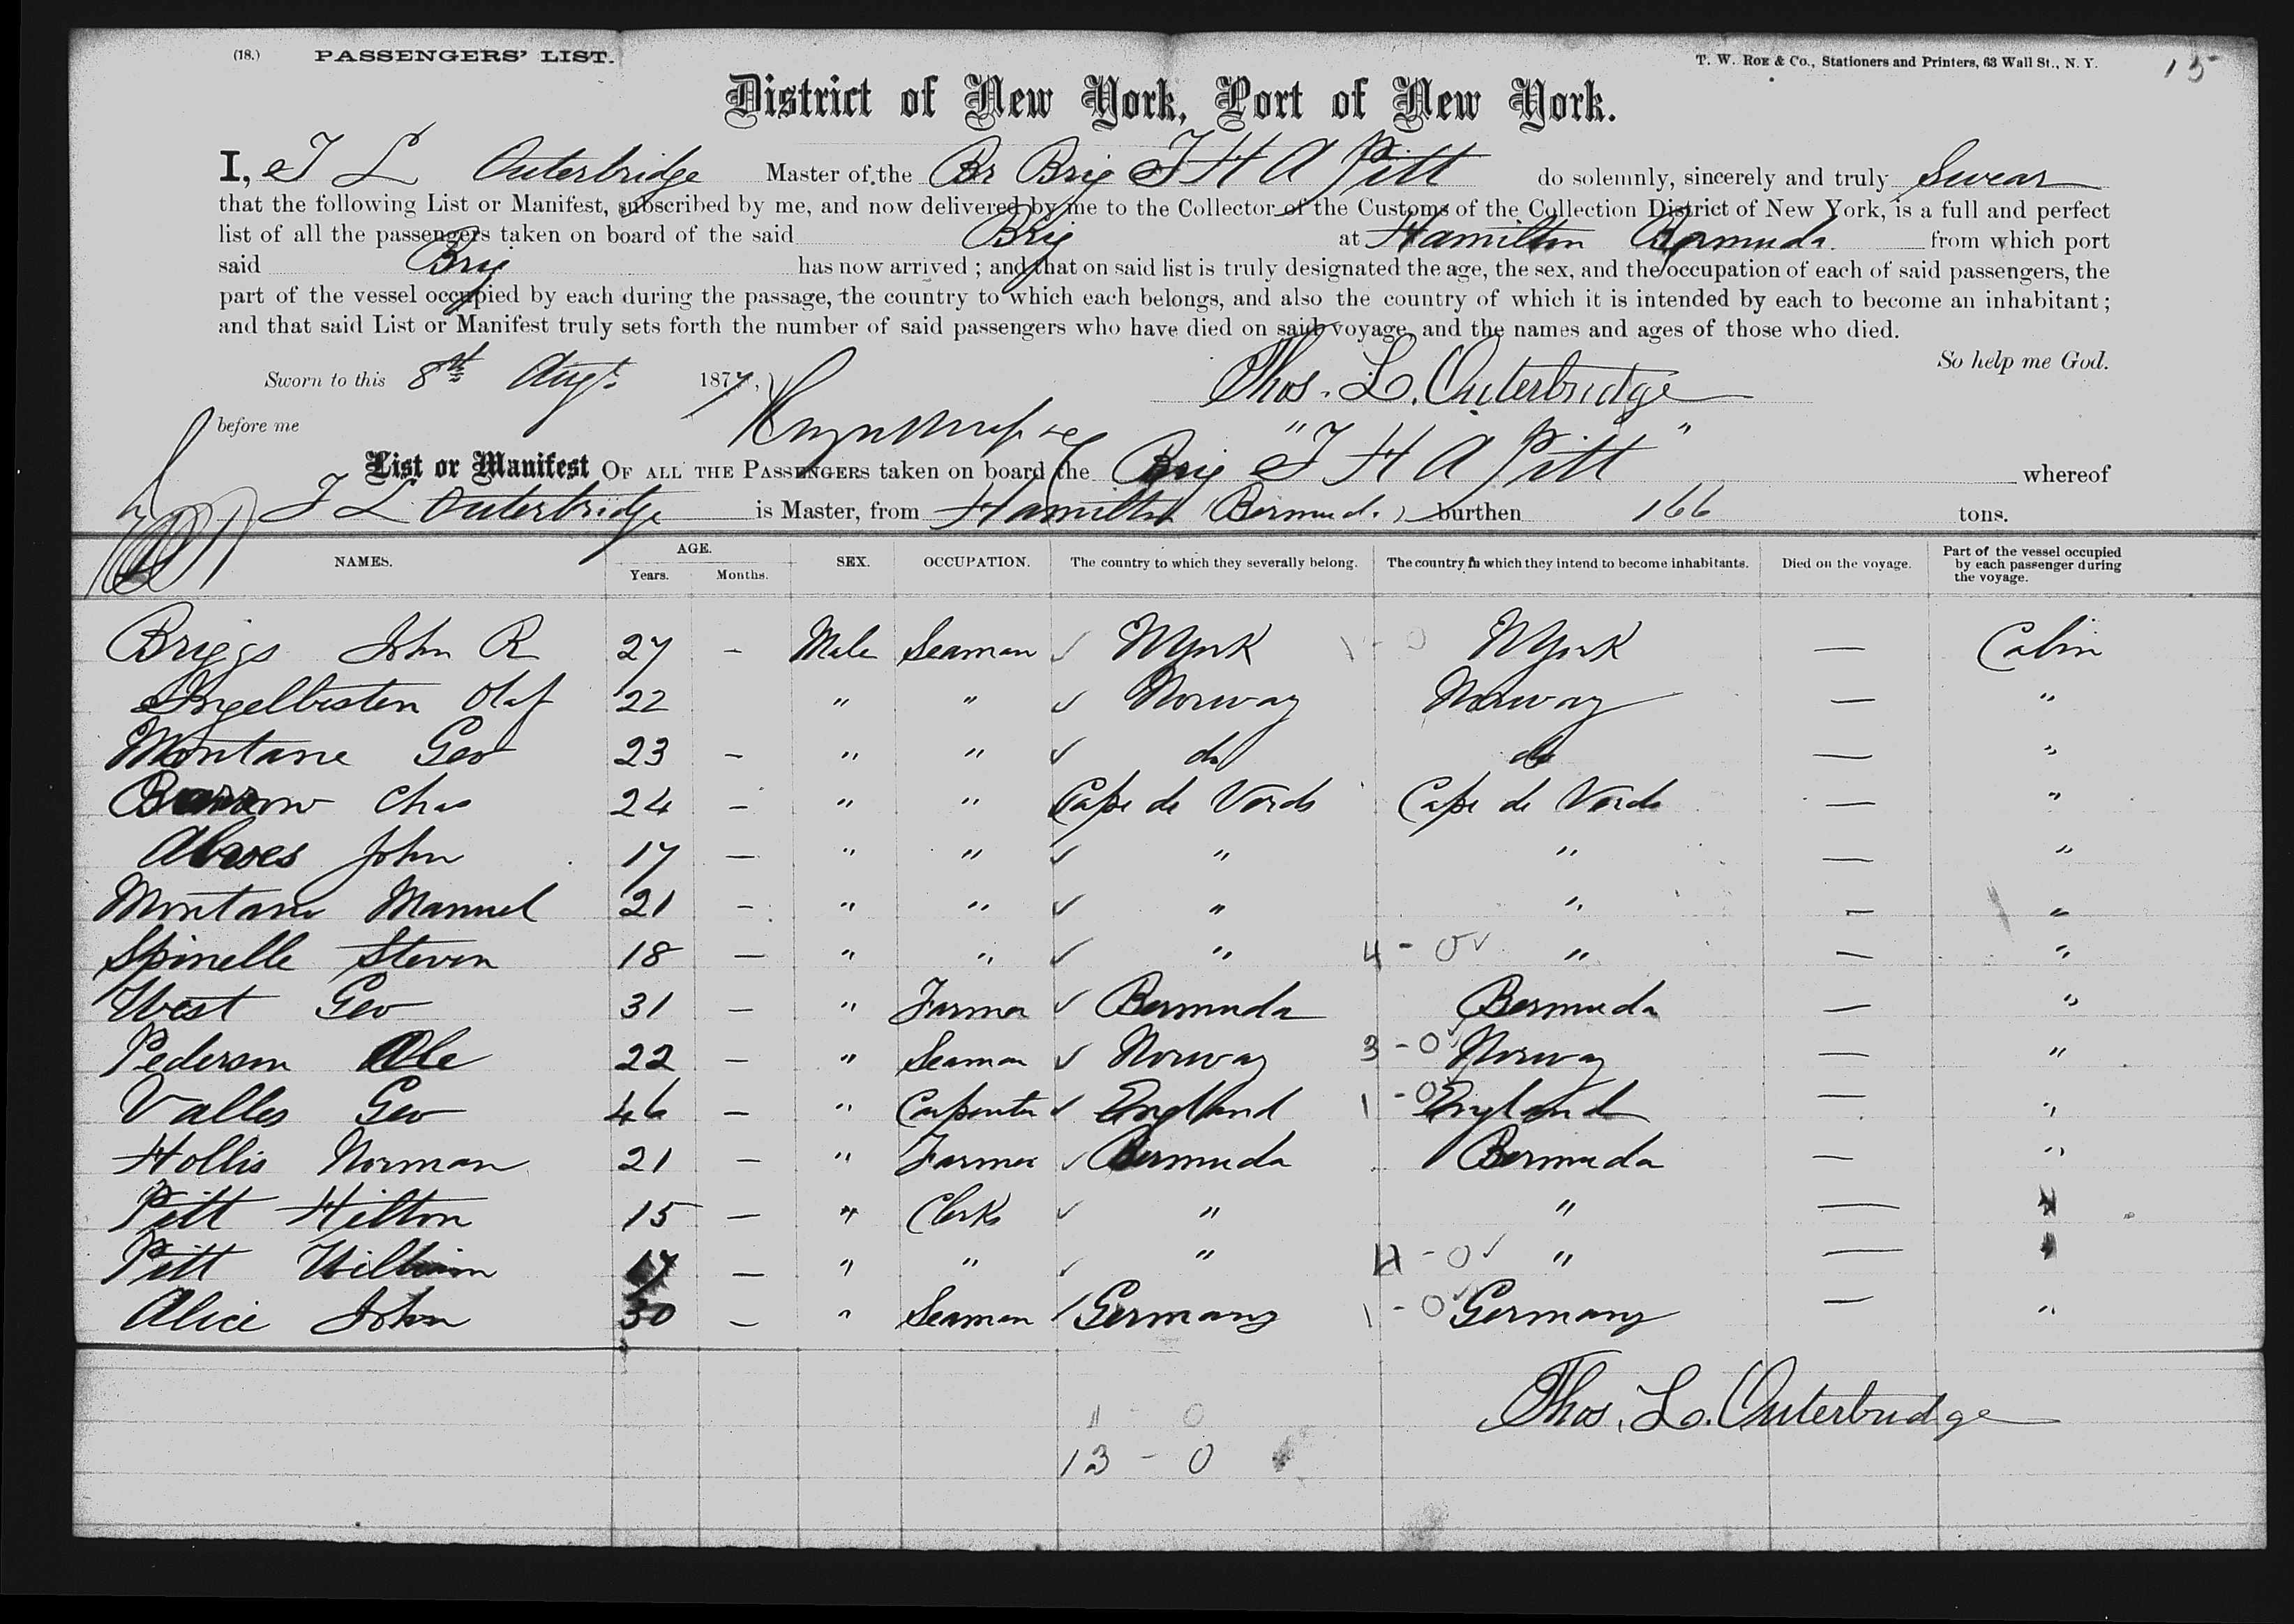 (18.) PASSENGERS' LIST. T. W. Roe & Co., Stationers and Printers, 63 Wall St., N. Y. 15
District of New York, Port of New York.
I, T L Outerbridge Master of the Br Brig T H A Pitt do solemnly, sincerely and truly Swear
that the following List or Manifest, subscribed by me, and now delivered by me to the Collector of the Customs of the Collection District of New York, is a full and perfect
list of all the passengers taken on board of the said Brig at Hamilton Bermuda from which port
said Brig has now arrived; and that on said list is truly designated the age, the sex, and the occupation of each of said passengers, the
part of the vessel occupied by each during the passage, the country to which each belongs, and also the country of which it is intended by each to become an inhabitant;
and that said List or Manifest truly sets forth the number of said passengers who have died on said voyage, and the names and ages of those who died.
So help me God.
Sworn to this 8th Augt. 1877, Thos. L. Outerbridge
before me
List or Manifest OF ALL THE PASSENGERS taken on board the Brig "T H A Pitt" whereof
T L Outerbridge is Master, from Hamilton (Bermuda) burthen 166 tons.
NAMES. AGE. Years. Months. SEX. OCCUPATION. The country to which they severally belong. The country in which they intend to become inhabitants. Died on the voyage. Part of the vessel occupied by each passenger during the voyage.
Briggs John R 27 — Male Seaman ✓ NYork 1 - 0 NYork — Cabin
Olaf 22 " " ✓ Norway Norway — "
Montane Geo 23 — " " ✓ do do — "
Chas 24 — " " Cape de Verds Cape de Verds — "
John 17 — " " ✓ " " — "
Montano Manuel 21 — " " ✓ " " — "
Spinelle Steven 18 — " " ✓ " 4 - 0 ✓ " — "
West Geo 31 — " Farmer ✓ Bermuda Bermuda — "
Pederson Ole 22 — " Seaman ✓ Norway 3 - 0 ✓ Norway — "
Valles Geo 46 — " Carpenter ✓ England 1 - 0 ✓ England — "
Hollis Norman 21 — " Farmer ✓ Bermuda Bermuda — "
Pitt Hilton 15 — " Clerks ✓ " " — "
Pitt William 17 — " " ✓ " - 0 ✓ " — "
Alice John 30 — " Seaman ✓ Germany 1 - 0 ✓ Germany — "
Thos. L. Outerbridge
- 0
13 - 0